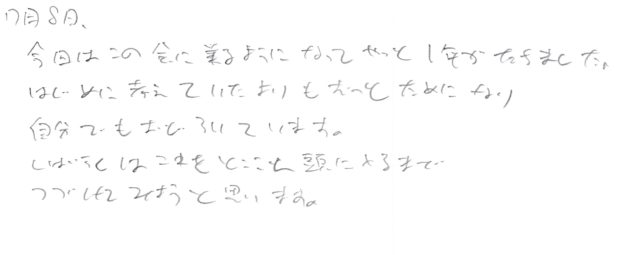 7月8日、
今日はこの会に来るようになってやっと1年がたちました。
はじめに考えていたよりもずっとためになり
自分でもおどろいています。
しばらくはこれをとことん頭に入るまで
つづけてみようと思います。